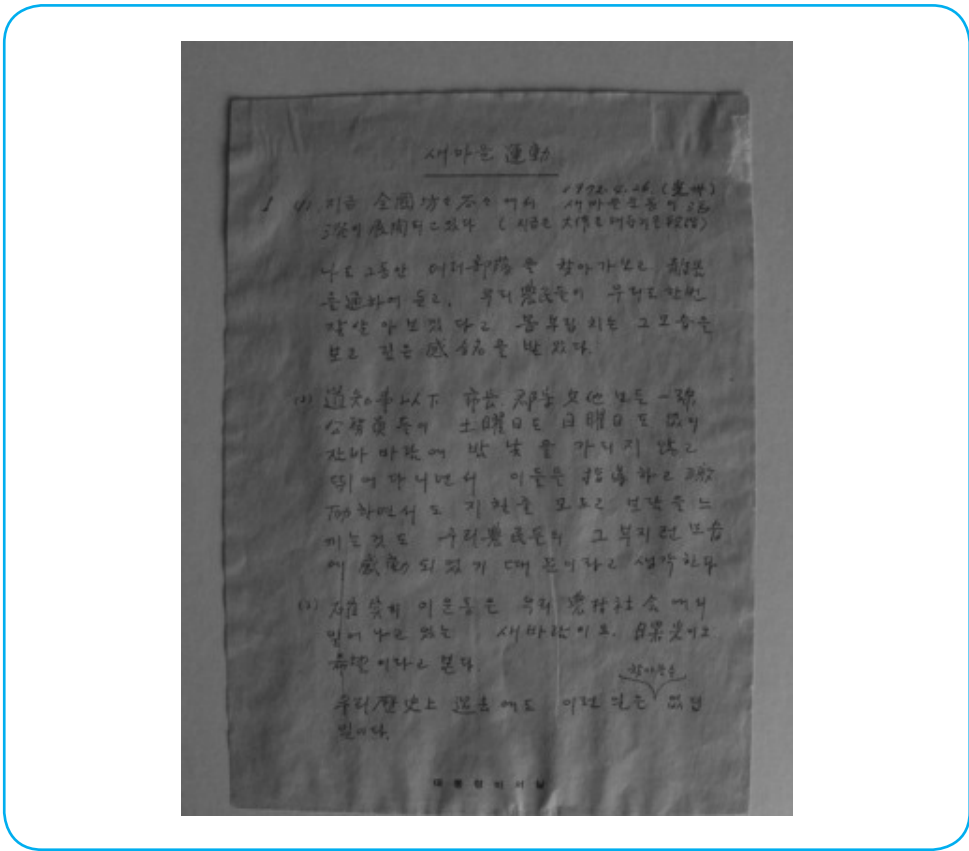 새마을 運動
1972. 4. 26. (光州)
1 (1) 지금 全國 坊々谷々에서 새마을운동이
展開되고 있다 (
나도 그동안 여러 部落을 찾아가보고
을 通하여 듣고, 우리 農民들이 우리도 한번
잘살아 보겠다고 몸부림치는 그 모습을
보고 깊은 感銘을 받았다.
(2) 道知事以下 市長 郡守 其他 모든 一線
公務員들이 土曜日도 日曜日도 없이
밤낮을 가리지 않고
뛰어다니면서 이들을 指導하고 激
勵하면서도 지칠줄 모르고 보람을 느
끼는 것도 우리 農民들의 그 부지런한 모습
에 感動되었기 때문이라고 생각한다
(3) 確實히 이 운동은 우리 農村社會에서
일어나고 있는 새바람이요. 曙光이요
希望이라고 본다.
우리 歷史上 過去에도 이런 일은 찾아볼수 없던
일이다.
대통령비서실